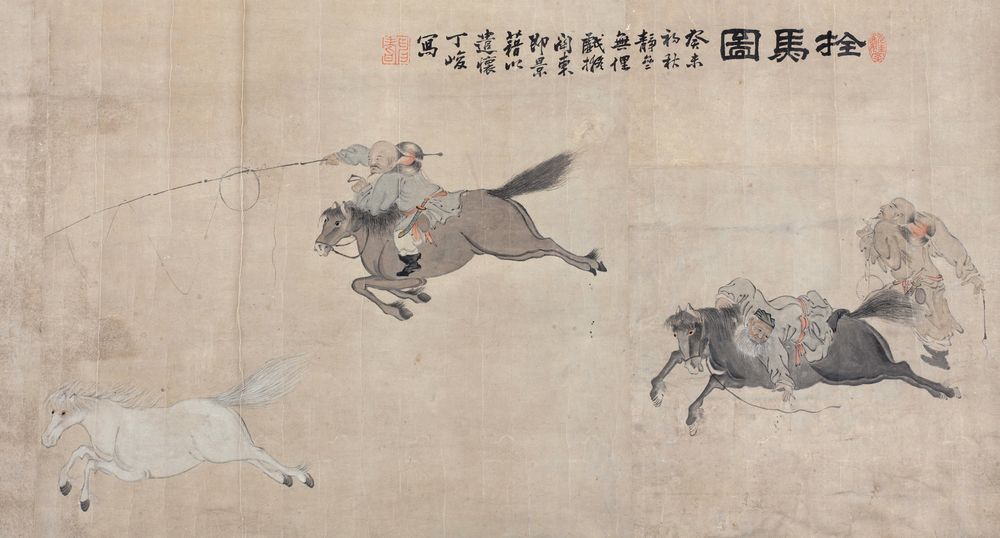 拴馬圖
癸未
初秋
靜坐
無俚
戲擬
關東
即景
藉以
遣懷
丁峻
寫